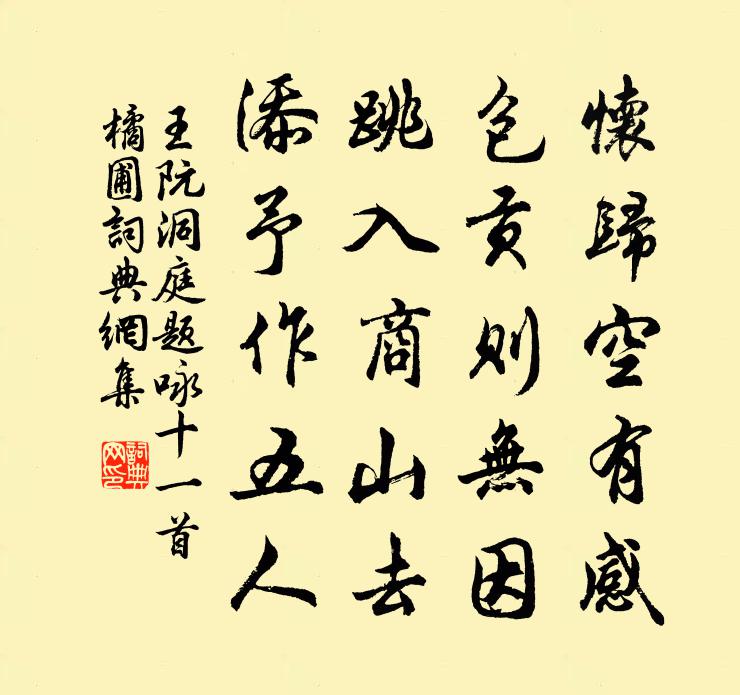 懷歸空有感
包貢則無因
跳入商山去
添予作五人
王阮洞庭題咏十一首
橘圃詞典網集
詞典网印